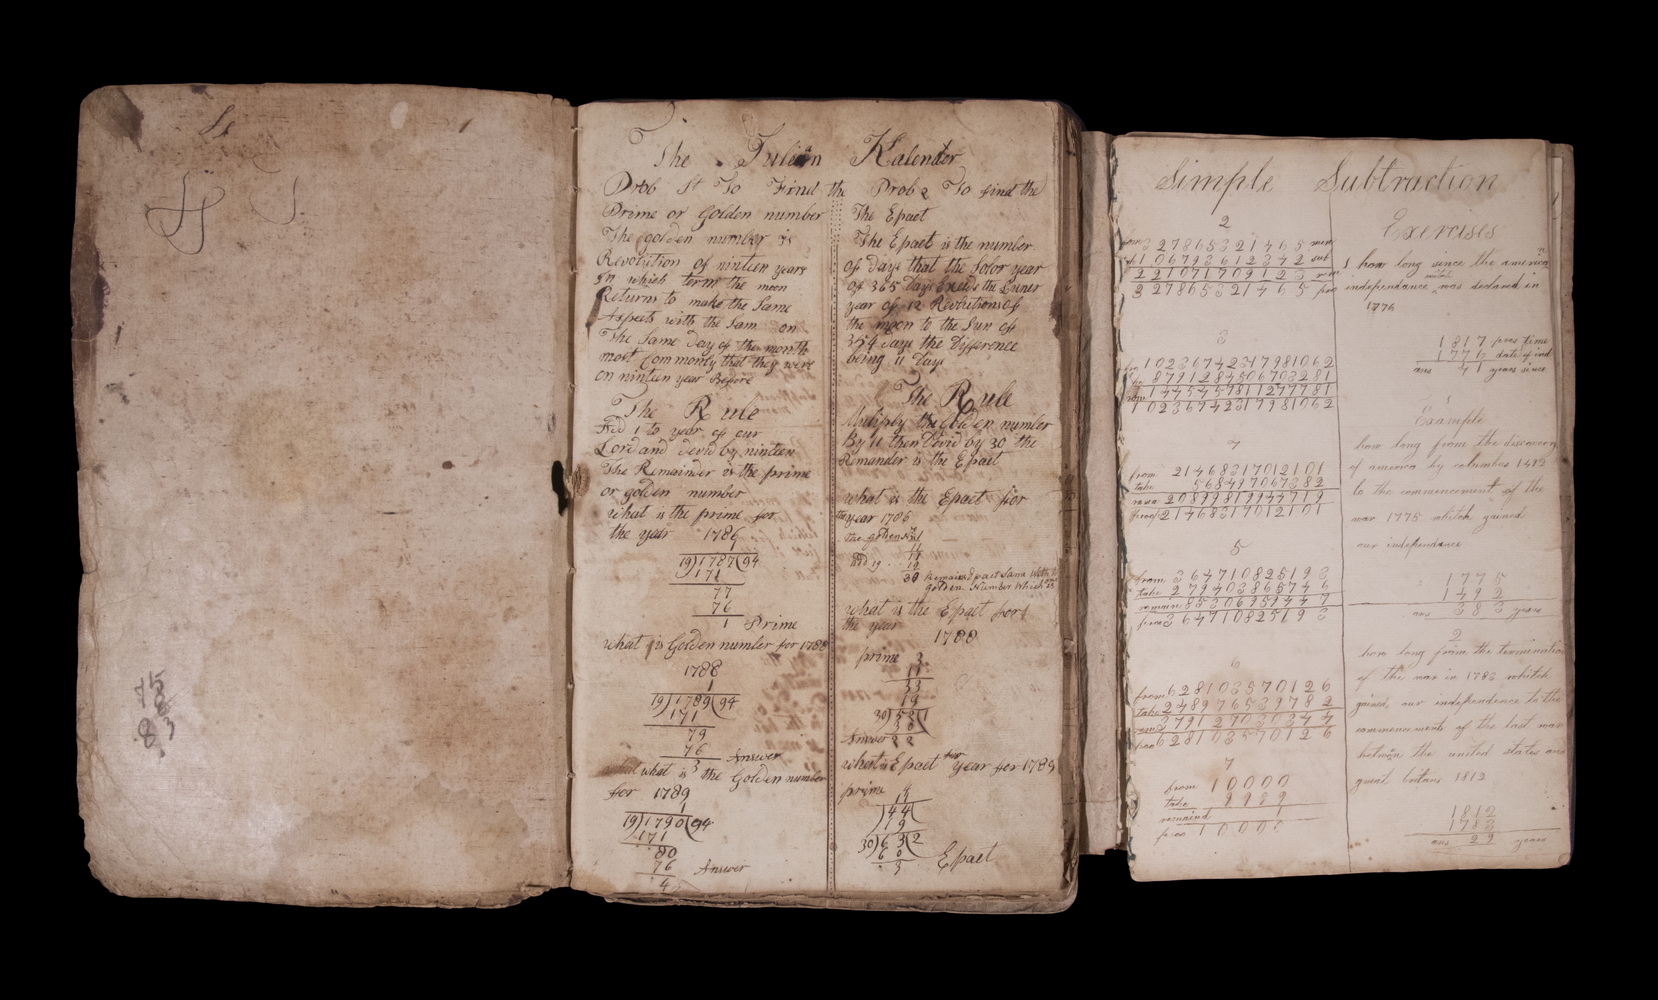 75
88
83
The Julian Kalender
Prob 1st To Find the
Prime or Golden number
The golden number is
Revolution of ninteen years
In which term the moon
Returns to make the Same
Aspects with the Sam on
The Same day of the month
most Commonly that they were
on ninteen year Before
The Rule
Ad 1 to year of our
Lord and devid by ninteen
The Remainder is the prime
or golden number
what is the prime for
the year 1786
1
19)1787(94
171
77
76
1 Prime
what is Golden number for 1788
1788
1
19)1789(94
171
79
76
3 Answer
what is the Golden number
for 1789
1
19)1790(94
171
80
76
4 Answer
Prob 2 To find the
The Epact
The Epact is the number
of days that the Solor year
of 365 days Exceeds the Luner
year of 12 Revolutions of
the moon to the Sun of
354 days the Difference
being 11 days
The Rule
Multiply the Golden number
By 11 then Devid by 30 the
Remander is the Epact
what is the Epact for
the year 1786
the golden
11
Ad 19
19
30 Remain Epact Same With
golden Number Which
what is the Epact for
the year
1788
prime 3
11
33
19
30)52(1
30
Answer 22
what is Epact for year for 1789
prime 4
11
44
19
30)63(2
60
3 Epact
Simple Subtraction
2
from 327865321465 min
106793612342 sub
2210717091 23
3278653214 65
3
10236742317981062
8791284506703281
1445457811277781
10236742317981062
4
from 21468317012101
take 568497067382
rema 20899819944719
proof 21468317012101
5
from 3647108251 9
take 27940386574
remain
proof
6
from 6281035701 26
take 2489765397 8
7
from 10000
take 9999
remaind 1
proo 10000
Exercises
1 how long since the american
independance was declared in
1776
1817 pres time
1776 date of ind
ans 41 years since
Example
how long from the discovery
of america by columbus 1492
to the commencement of the
war 1775 whitch gained
our independance
1775
1492
ans 283 years
2
how long from the termination
of the war in 1783 whitch
gained our independence to the
commencement of the last war
betwixn the united states and
great britans 1812
1812
1783
ans 29 years